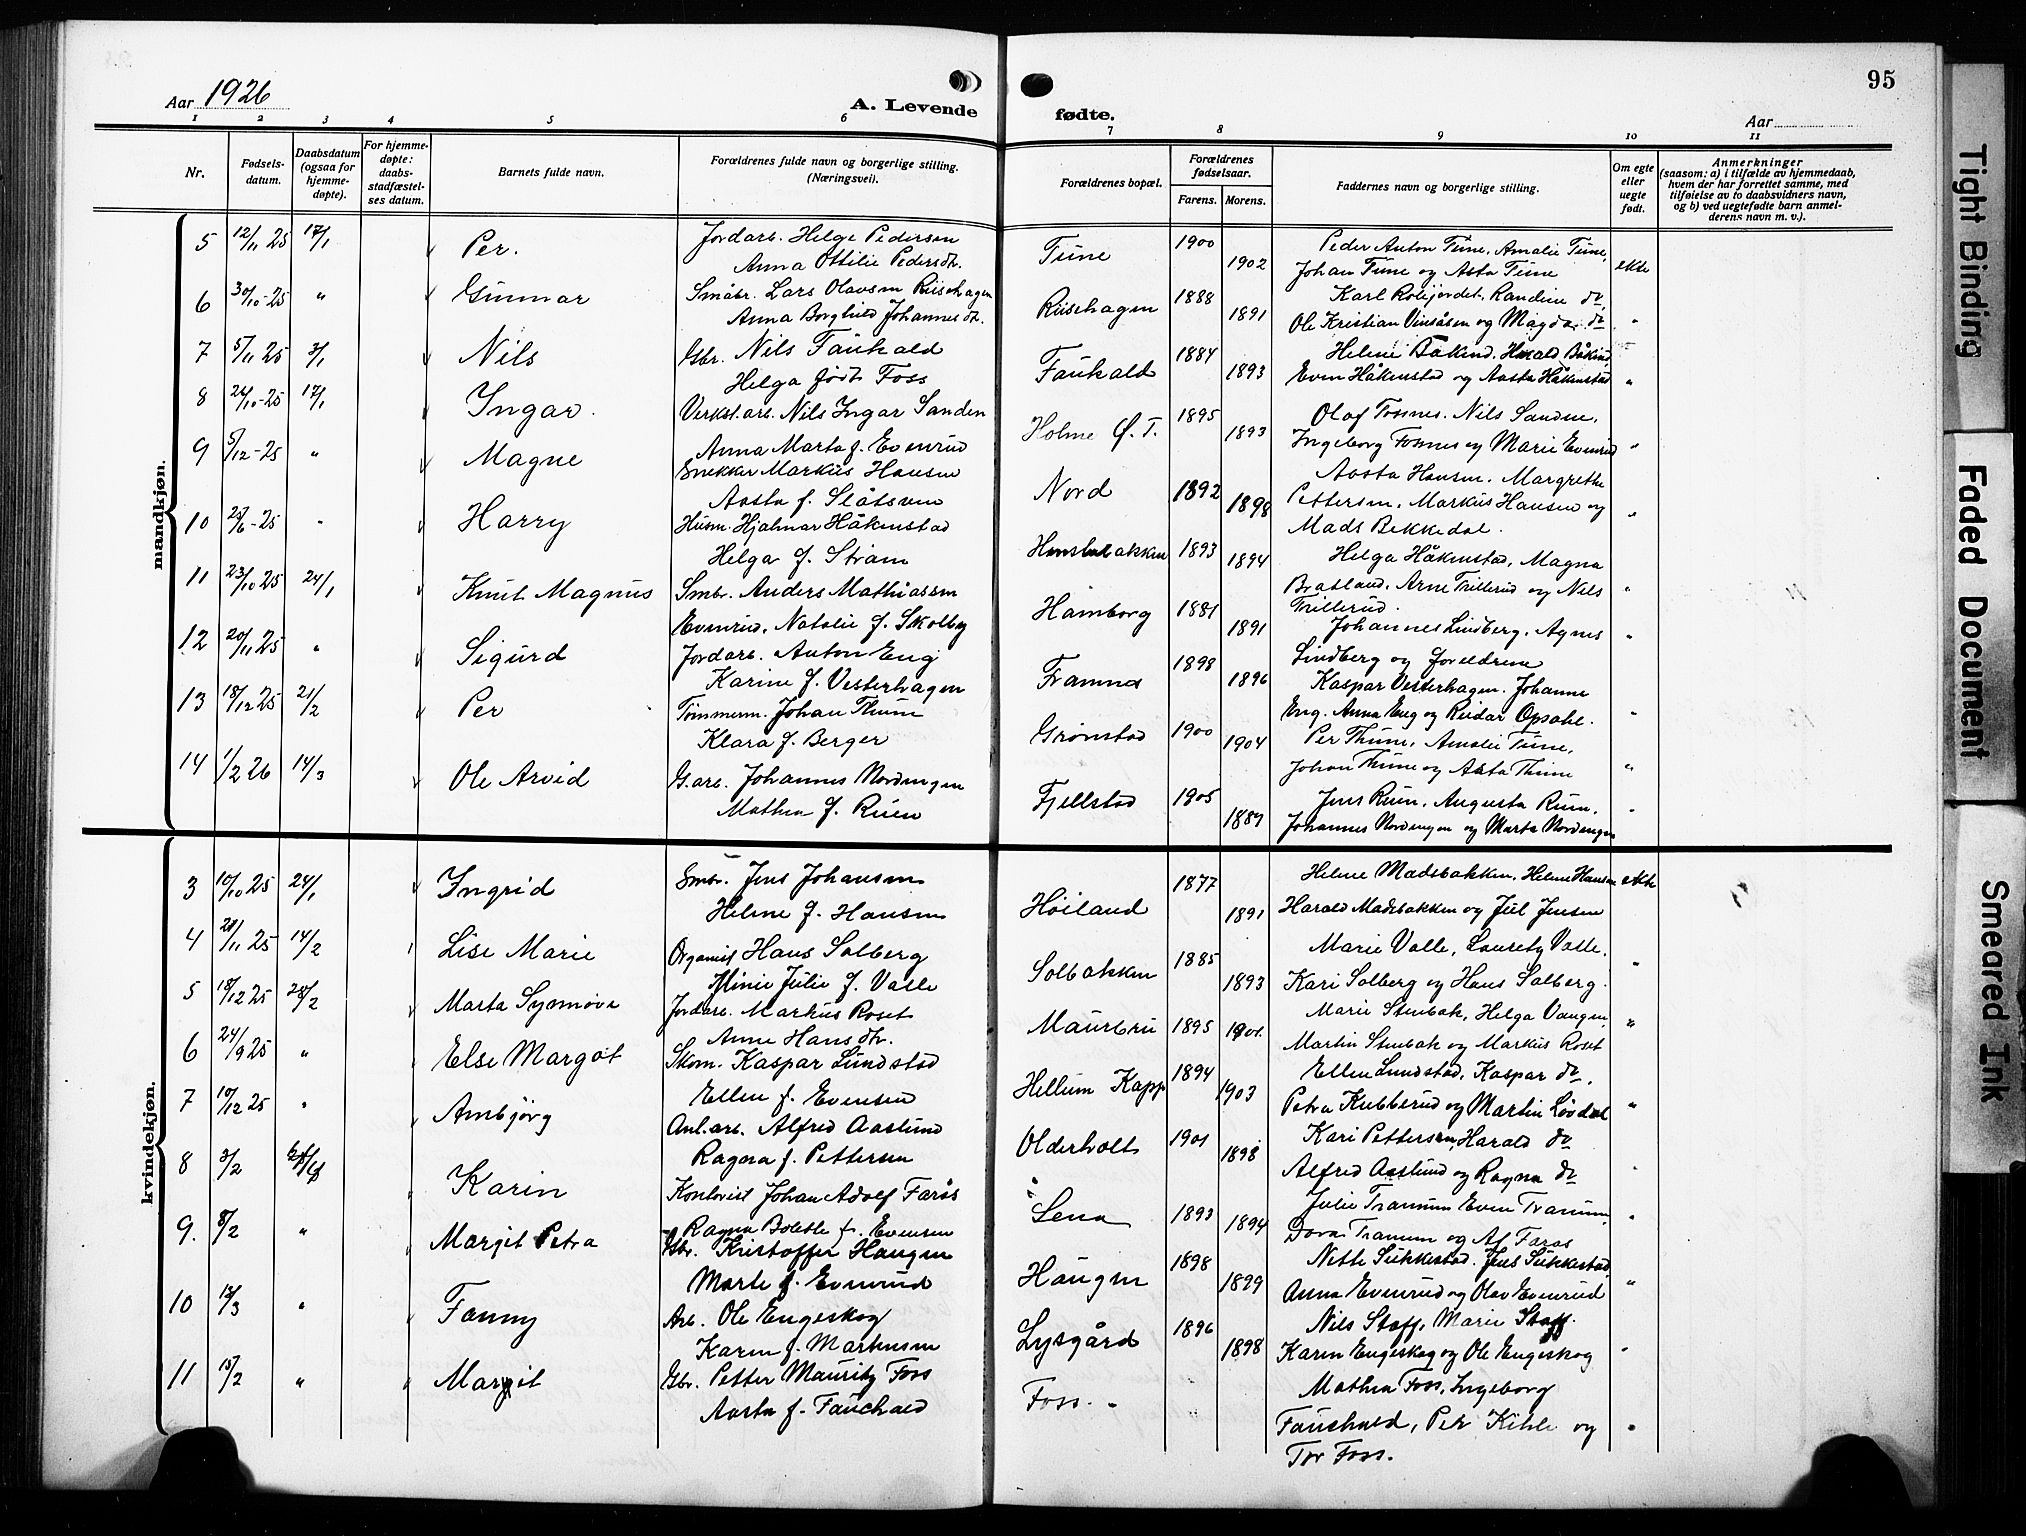 Aar 1926
A. Levende
fødte.
Aar
95
1 2 3 4 5 6 7 8 9 10 11
Nr.
Fødsels-
datum.
Daabsdatum
(ogsaa for
hjemme-
døpte).
For hjemme-
døpte:
daabs-
stadfæstel-
ses datum.
Barnets fulde navn.
Forældrenes fulde navn og borgerlige stilling.
(Næringsvei).
Forældrenes bopæl.
Forældrenes
fødselsaar.
Farens. Morens.
Faddernes navn og borgerlige stilling.
Om egte
eller
uegte
født.
Anmerkninger
(saasom: a) i tilfælde av hjemmedaab,
hvem der har forrettet samme, med
tilføielse av to daabsvidners navn,
og b) ved uegtefødte barn anmel-
derens navn m. v.).
mandkjøn.
5 12/11 25 17/1 Per. Jordarb. Helge Pedersen Tune 1900 Peder Anton Tune, Amalie Tune,
Anna Ottilie Pedersdt. 1902 Johan Tune og Asta Tune ekte
6 30/10-25 " Gunnar Småbr. Lars Olavsen Riisehagen Riisehagen 1888 Karl Rolijordet, Randine do,
Anna Borghild Johannesdt. 1891 Ole Kristian Vinsåsen og Magda do "
7 5/11 25 3/1 Nils Gbr. Nils Faukald Faukald 1884 Helene Båkind, Harald Båkind,
Helga født Foss 1893 Even Håkenstad og Aasta Håkenstad "
8 24/10-25 17/1 Ingar. Verkst.arb. Nils Ingar Sanden Holme Ø.T. 1895 Olaf Fossnes. Nils Sandne,
Anna Marta f. Evenrud 1893 Ingeborg Fossnes og Marie Evenrud "
9 5/12-25 " Magne Snekker Markus Hansen Nord 1892 Aasta Hansen, Margrethe
Aasta f. Slåtsveen 1898 Pettersen, Markus Hansen og "
Mads Bekkedal.
10 25/6-25 " Harry Husm. Hjalmar Håkenstad 1893 Helga Håkenstad, Magna
Helga f. Strøm 1894 Bratland, Arne Trillerud og Nils "
Trillerud.
11 23/10 25 24/1 Knut Magnus Smbr. Anders Mathiassen Hámborg 1881 Johannes Lindberg, Agnes "
Evenrud, Natalie f. Skolby 1891 Lindberg og foreldrene
12 20/11 25 " Sigurd Jordarb. Anton Eng Framnes 1898 Kaspar Vesterhagen. Johanne
Karine f. Vesterhagen 1896 Eng. Anna Eng og Reidar Opsahl. "
13 18/12 25 21/2 Per Tømmerm. Johan Thune Grønstad 1900 Per Thune, Amalie Tune,
Klara f. Berger 1904 Johan Thune og Asta Thune "
14 1/2 26 14/3 Ole Arvid G.arb. Johannes Nordengen Fjellstad 1905 Jens Ruen, Augusta Ruen, "
Mathea f. Ruen 1889 Johannes Nordengen og Marta Nordengen
kvindekjøn.
3 10/10 25 24/1 Ingrid Smbr. Jens Johansen Høiland 1877 Helene Madsbakken, Helene Hansen ekte
Helene f. Hansen 1891 Harald Madsbakken og Jul Jensen
4 21/11 25 14/2 Lise Marie Organist Hans Solberg Solbakken 1885 Marie Valle, Lauretz Valle. "
Minie Julie f. Valle 1893 Kari Solberg og Hans Solberg.
5 18/12 25 28/2 Marta Synnøve Jordarb. Markus Roset Maurbru 1895 1901. Marie Stenbak, Helga Vangen, "
Anne Hansdt. Martin Stenbak og Markus Roset
6 24/9 25 " Else Margot Skom. Kaspar Lundstad Hellum Kapp 1894 Ellen Lundstad, Kaspar do,
Ellen f. Evensen 1903 Petra Kubberud og Martin Løvdal "
7 10/12 25 " Ambjörg Anl.arb. Alfred Aaslund Olderholt 1901 Kari Pettersen, Harald do
Ragna f. Pettersen 1898 Alfred Aaslund og Ragna do "
8 3/2 Karin Kontorist Johan Adolf Farås Lena 1893 Julie Tranum Even Tranum,
Ragna Bolette f. Evensen 1894 Dora Tranum og Af. Farås "
9. 8/2 " Margit Petra Gbr. Kristoffer Haugen Haugen 1898 Nette Sukkestad. Jens Sukkestad
Marte f. Evenrud 1899 Anna Evenrud og Olav Evenrud "
10 12/3 " Fanny Arb. Ole Engeskog Lysgård 1896 Nils Staff, Marie Staff.
Karen f. Markusen 1898 Karen Engeskog og Ole Engeskog "
11 15/2 " Margit Gbr. Petter Mauritz Foss Foss. Mathea Foss, Ingeborg
Aasta f. Fauchald Fauchald, Per Kihle og "
Tor Foss.
Tight Binding
Faded Document
Smeared Ink